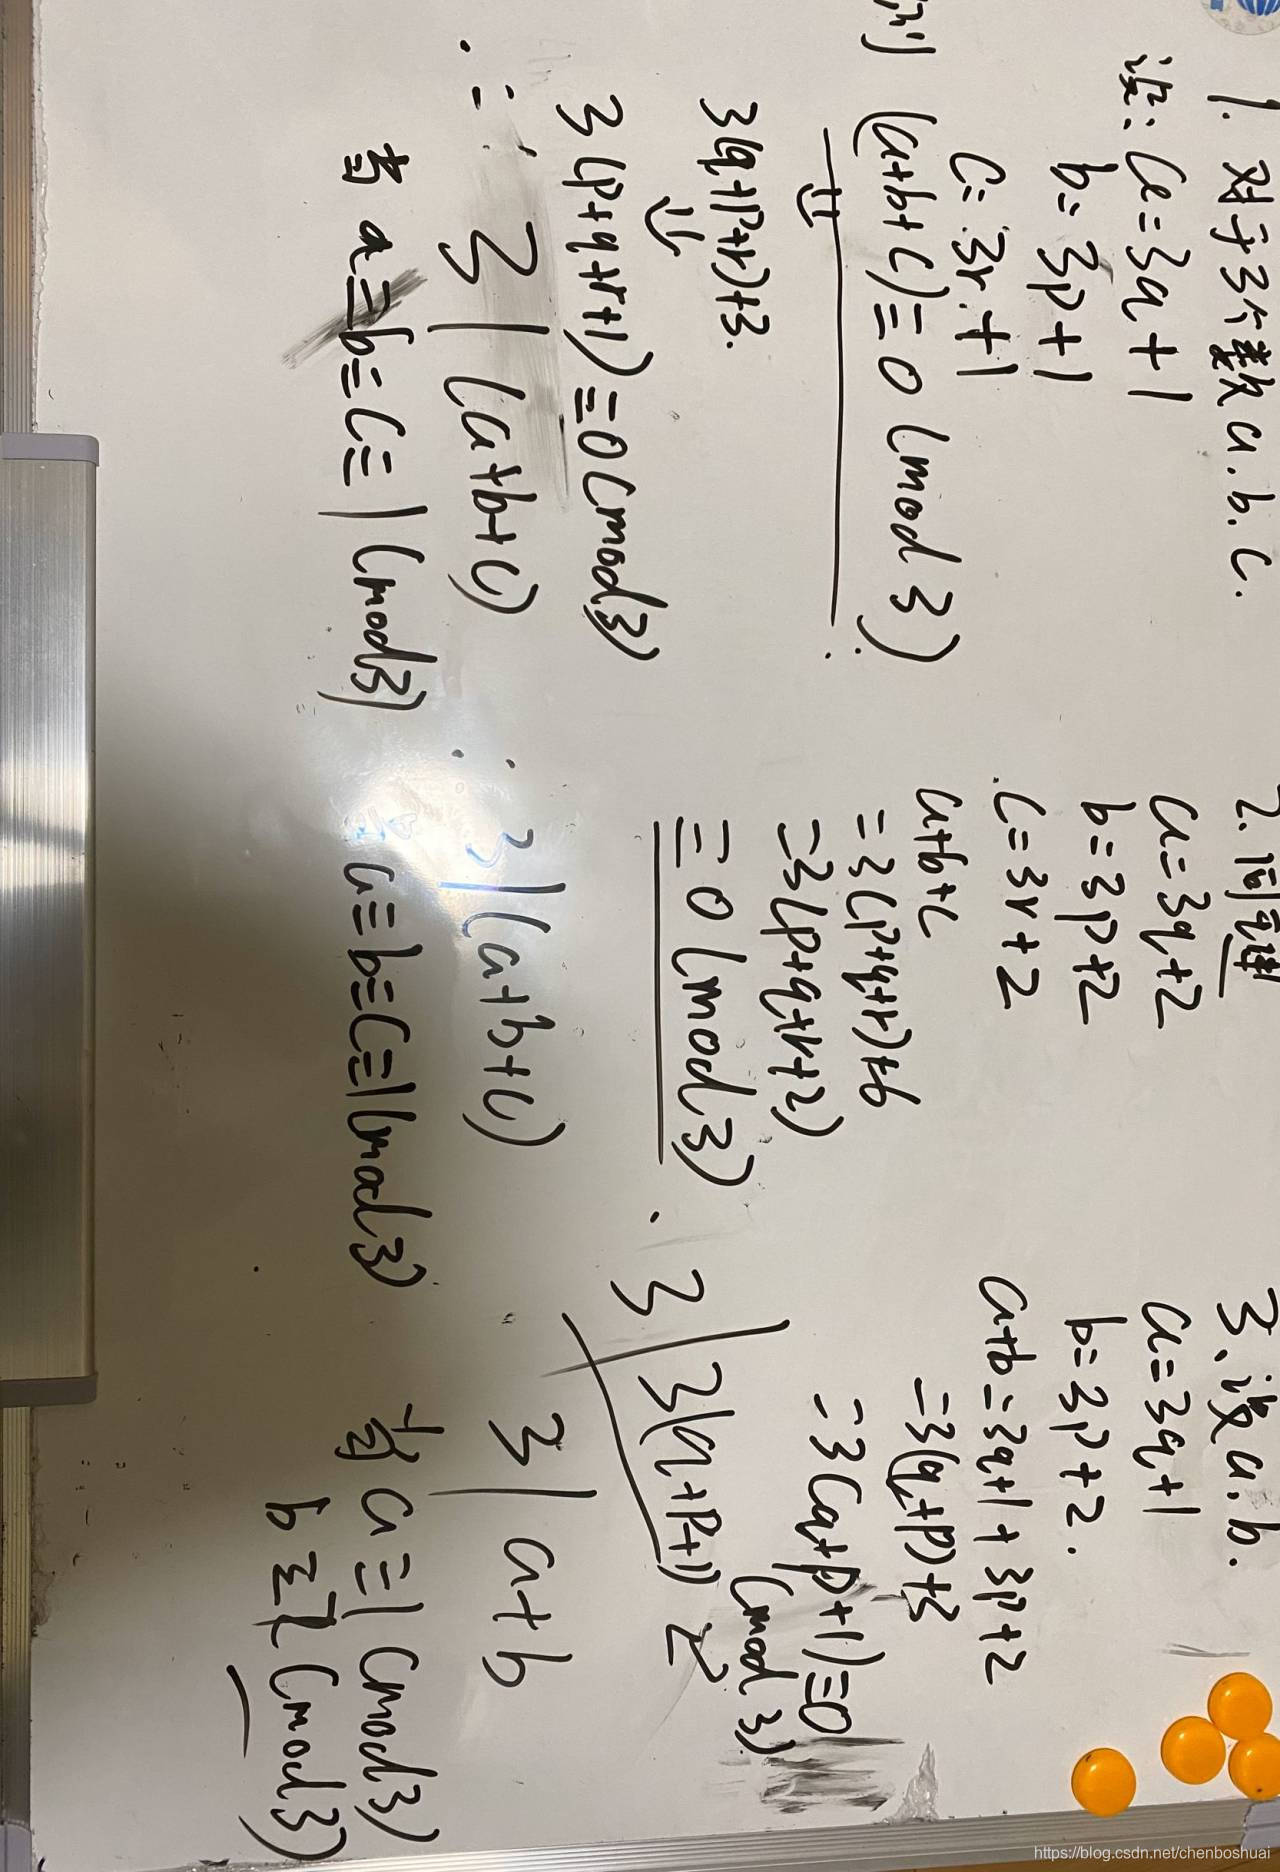 1. 对于3个数a.b.c.
设: a=3q+1
b=3p+1
c=3r+1
则 (a+b+c)≡0(mod 3)
3(q+p+r)+3.
3(p+q+r+1)≡0(mod3)
∴ 3|(a+b+c)
当 a≡b≡c≡1(mod3)
2.同理
a=3q+2
b=3p+2
c=3r+2
a+b+c
=3(p+q+r)+6
=3(p+q+r+2)
≡0(mod3)
∴ 3|(a+b+c)
a≡b≡c≡1(mod3)
3、设a.b.
a=3q+1
b=3p+2.
a+b=3q+1+3p+2
=3(q+p)+3
=3(q+p+1)≡0
(mod 3)
3|3(q+p+1)
3|a+b
当a≡1(mod3)
b≡2(mod3)
https://blog.csdn.net/chenboshuai